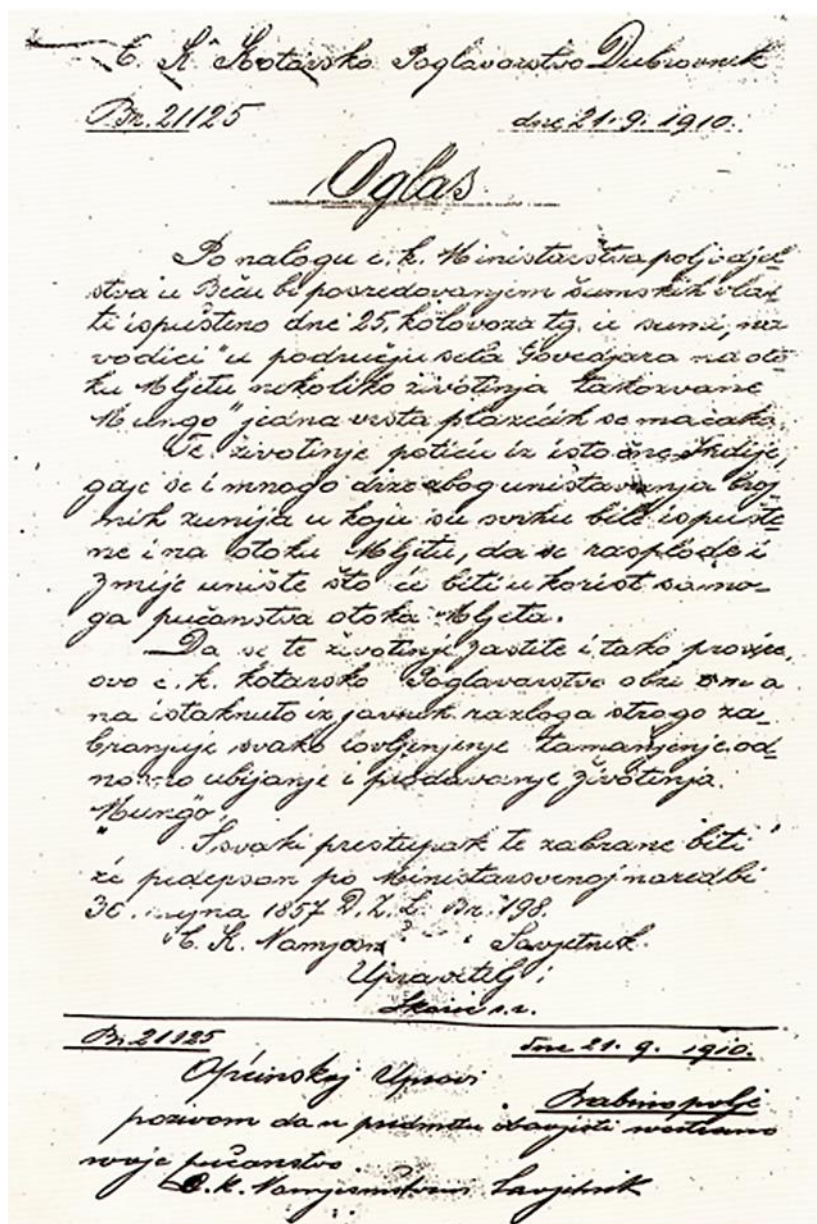 C. K. Kotarsko Poglavarstvo Dubrovnik
Br. 21125 dne 21. 9. 1910.
Oglas
Po nalogu c. k. Ministarstva poljodjel-
stva u Beču bi posredovanjem šumskih vlas-
ti ispušteno dne 25. kolovoza tg. u šumi, na
vodici" u području sela Govedjara na oto-
ku Mljetu nekoliko životinja takozvane
Mungo" jedna vrsta plazećih se mačaka.
Te životinje potiču iz istočne Indije,
gaje se i mnogo drže zbog uništavanja broj-
nih zmija u koju su svrhu bile ispušte-
ne i na otoku Mljetu, da se rasplode i
zmije unište što će biti u korist samo-
ga pučanstva otoka Mljeta.
Da se te životinje zaštite i tako
ovo c. k. kotarsko Poglavarstvo obzirom a
na istaknuto iz javnih razloga strogo za-
branjuje svako lovljenje tamanjenje od-
nosno ubijanje i prodavanje životinja
„Mungo".
Svaki prestupak te zabrane biti
će pedepsan po Ministarsvenoj naredbi
30. rujna 1857 D. Z. L. Br. 198.
C. K. Namjesn Savjetnik.
Upravitelj:
Br. 21125 dne 21. 9. 1910.
Općinskoj Upravi
Babinopolje
pozivom da u predmetu obavjesti
svoje pučanstvo.
C. K. Namjesništveni Savjetnik